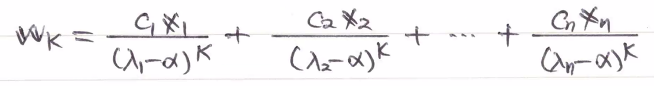 𝕨K = C₁𝕩₁/(λ₁-α)^K + C₂𝕩₂/(λ₂-α)^K + ... + Cn𝕩n/(λn-α)^K